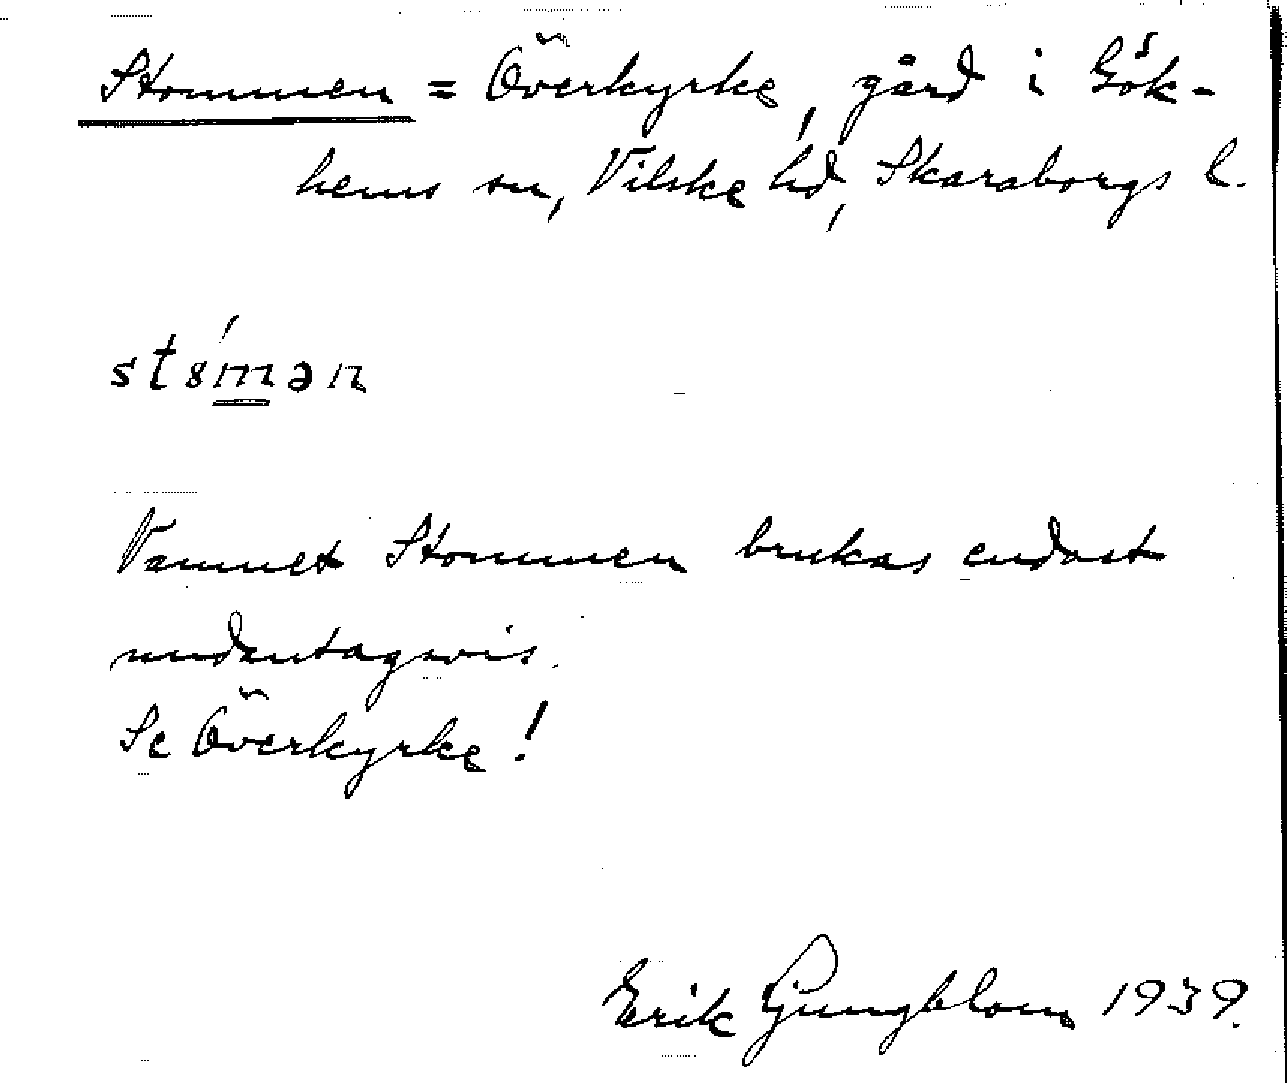 Stommen = Överkyrke, gård i Gök-
hems sn, Vilske hd, Skaraborgs l.
stómən
Namnet Stommen brukas endast
undantagsvis.
Se Överkyrke!
Erik Ljungblom 1939.